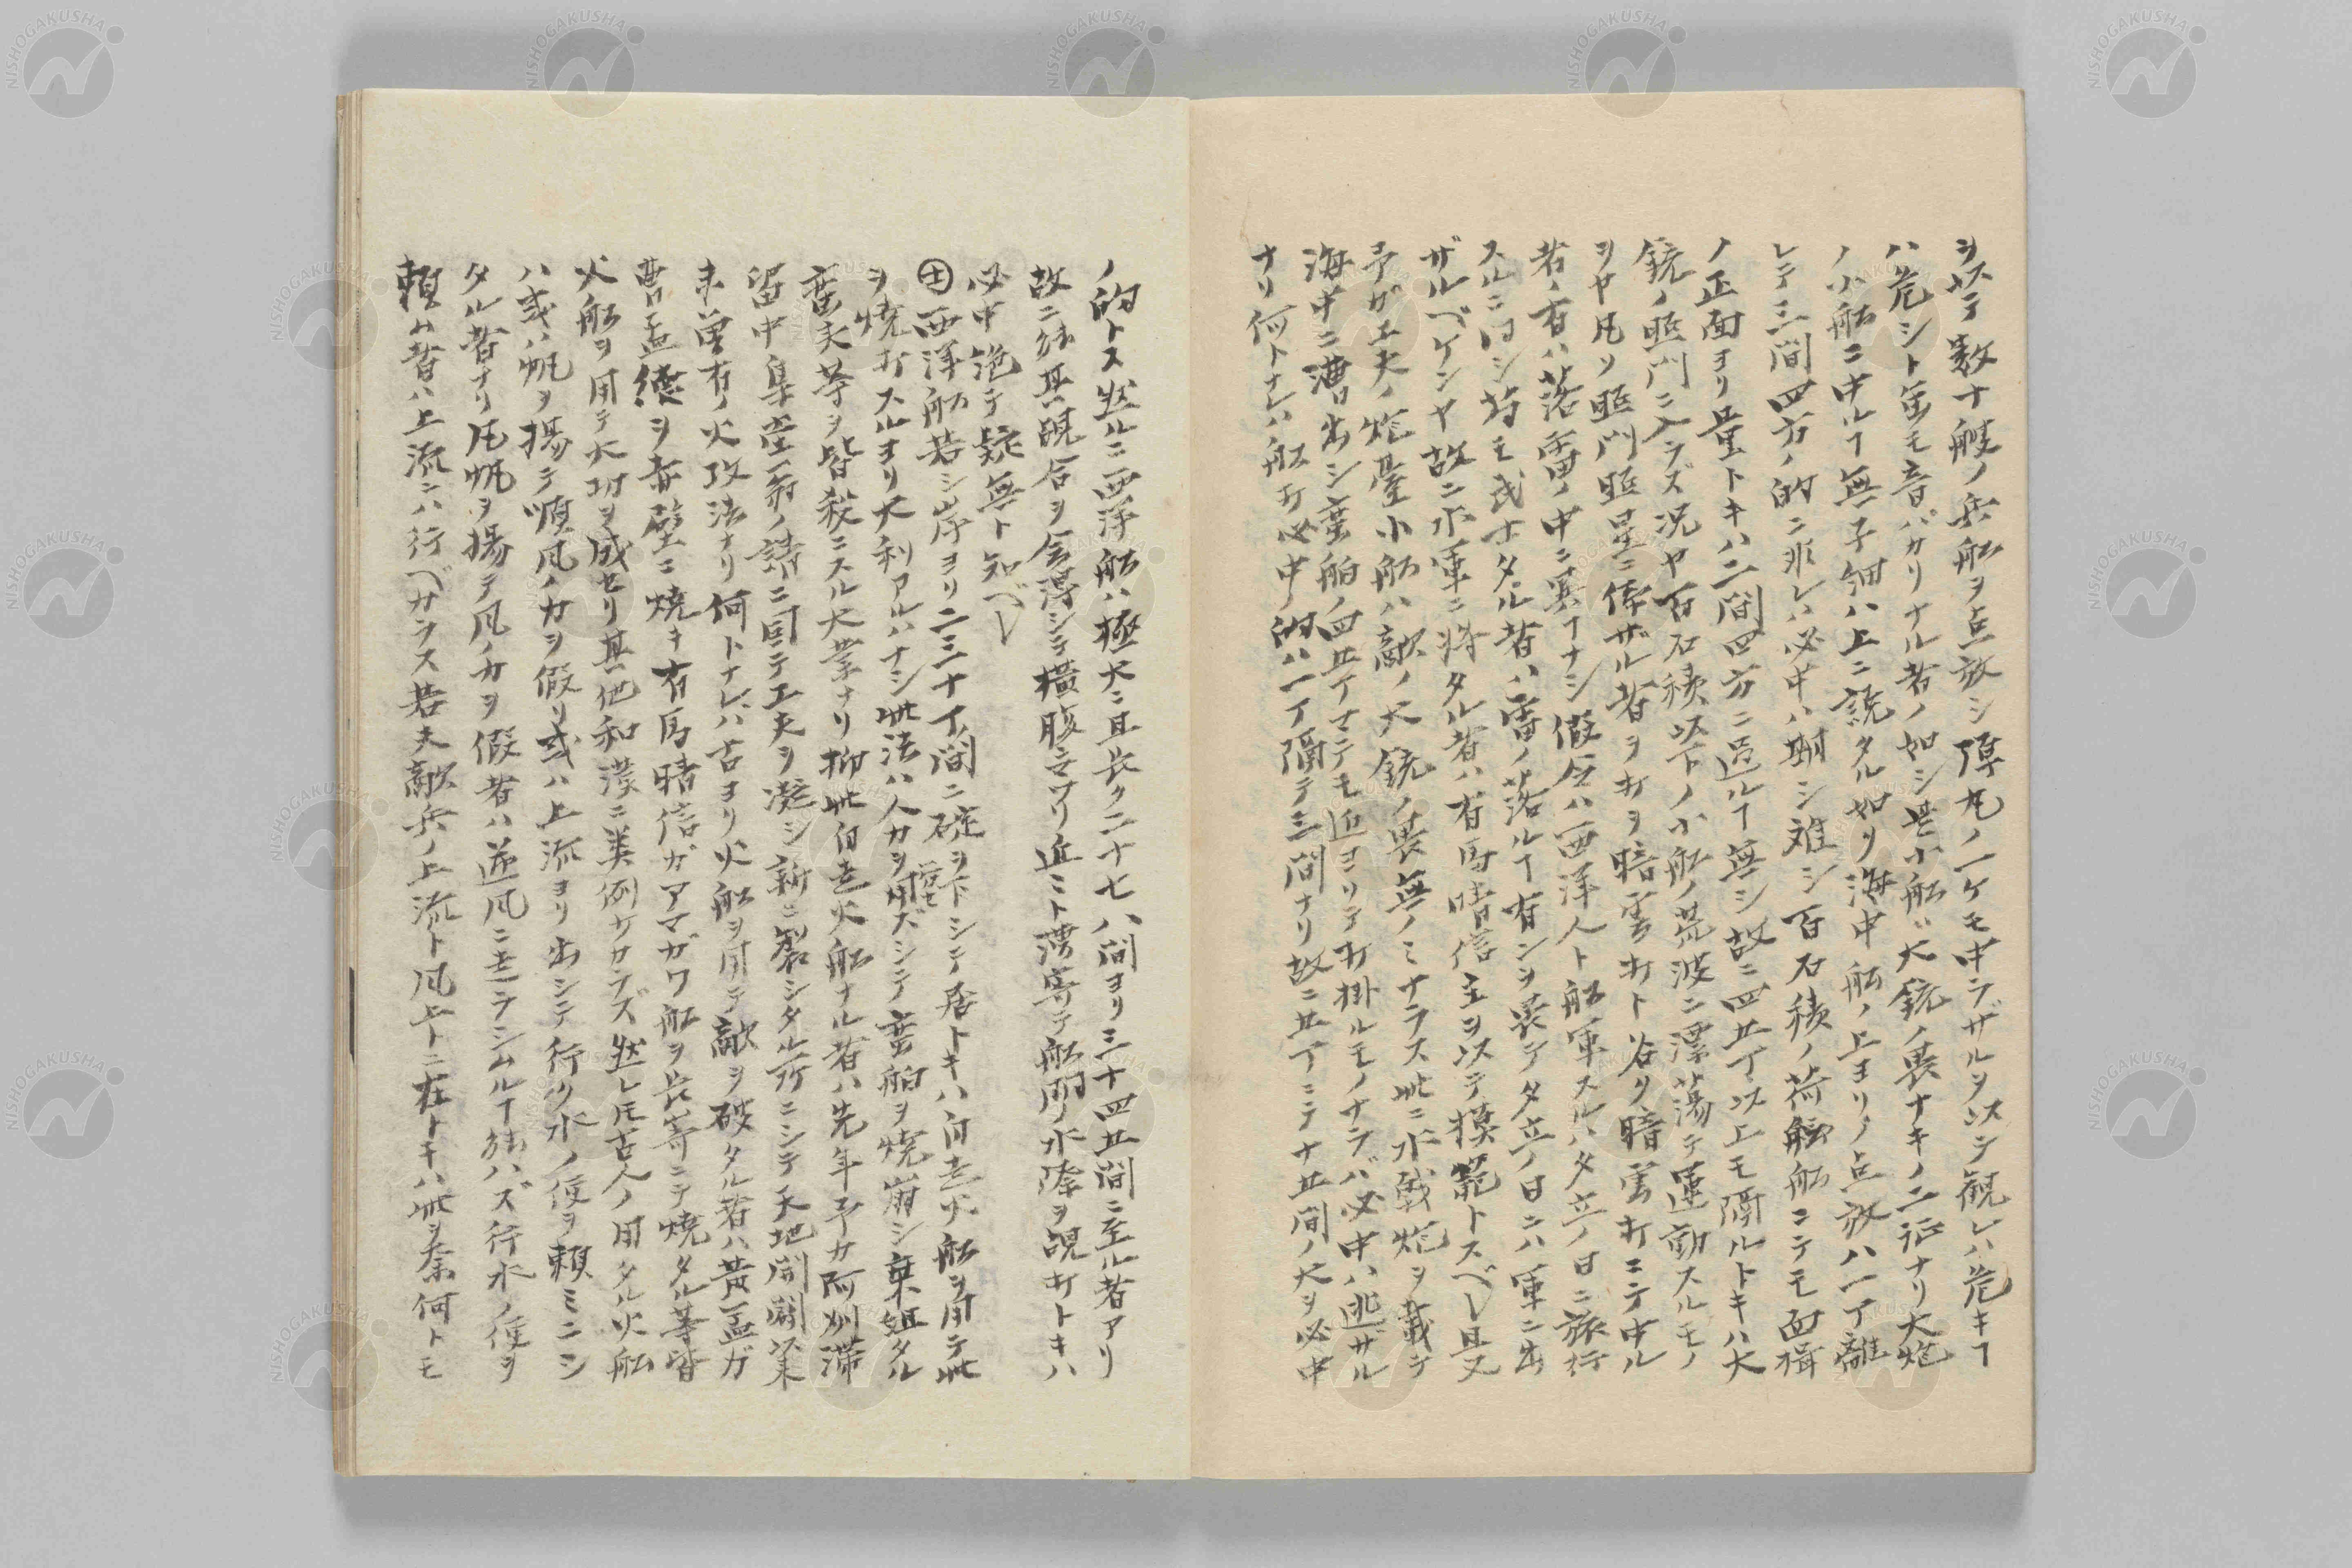 ヲ以テ数十艘ノ兵船ヲ点放シ弾丸ノ一ケモ中ラザルヲ以テ観レハ危キヿ
ハ危シト𧈧モ音バカリナル者ノ如シ是小船ハ大銃ノ畏ナキノ二証ナリ大炮
ノ小船ニ中ルヿ無子細ハ上ニ説タル如リ海中船ノ上ヨリノ点放ハ一丁離
レテ三間四方ノ的ニ非レハ必中ハ期シ難シ百石積ノ荷船ニテモ面楫
ノ正面ヨリ量トキハ二間四方ニ過ルヿ無シ故ニ四五丁以上モ隔ルトキハ大
銃ノ照門ニ入ラズ況ヤ百石積以下ノ小船ノ荒波ニ漂蕩テ運動スルモノ
ヲヤ凡ソ照門照星ニ係ザル者ヲ打ヲ暗雲打ト谷リ暗雲打ニテ中ル
者ノ有ハ落雷ノ中ニ異ヿナシ假令ハ西洋人ト船軍スルハ夕立ノ日ニ旅行
スルニ同シ苟モ武士タル者ハ雷ノ落ルヿ有ンヲ畏テ夕立ノ日ニハ軍ニ出
ザルベケンヤ故ニ水軍ニ将タル者ハ有馬晴信主ヲ以テ模範トスベシ且又
予ガ工夫ノ炮臺小船ハ敵ノ大銃ノ畏無ノミナラス此ニ水戦炮ヲ載テ
海中ニ漕出シ蛮舶ノ四五丁マテモ近ヨリテ打掛ルモノナラバ必中ハ逃ザル
ナリ何トナレハ船打必中ノ的ハ一丁隔テ三間ナリ故ニ五丁ニテ十五間ノ大ヲ必中
ノ的トス然ルニ西洋船ハ極大ニ且長ク二十七八間ヨリ三十四五間ニ至ル者アリ
故ニ能其規合ヲ会得シテ横腹ニマワリ近ミト漕寄テ船ノ水際ヲ覘打トキハ
必中絶テ疑無ト知ベシ
㊏西洋舶若シ岸ヨリ二三十丁ノ間ニ碇ヲ下シテ居トキハ自走火船ヲ用テ此
ヲ焼打スルヨリ大利アルハナシ此法ハ人力ヲ用ズシテ蛮舶ヲ焼崩シ乗組タル
蛮夫等ヲ皆殺ニスル大業ナリ抑此自走火船ナル者ハ先年予カ阿州滞
留中集堂翁ノ請ニ因テ工夫ヲ凝シ新ニ製シタル所ニシテ天地開闢以来
未曽有ノ火攻法ナリ何トナレバ古ヨリ火船ヲ用テ敵ヲ破タル者ハ黄蓋ガ
曹孟徳ヲ赤壁ニ焼キ有馬晴信ガアマガワ船ヲ長崎ニテ焼タル等皆
火船ヲ用テ大功ヲ成セリ其他和漢ニ類例少カラズ然レ𪜈古人ノ用タル火船
ハ或ハ帆ヲ揚テ順風ノ力ヲ假リ或ハ上流ヨリ出シテ行ク水ノ便ヲ頼ミニシ
タル者ナリ凡帆ヲ揚テ風ノ力ヲ假者ハ逆風ニ走ラシムルヿ能ハズ行水ノ便ヲ
頼ム者ハ上流ニハ行ベカラス若夫敵兵ノ上流ト風上トニ在トキハ此ヲ奈何トモ